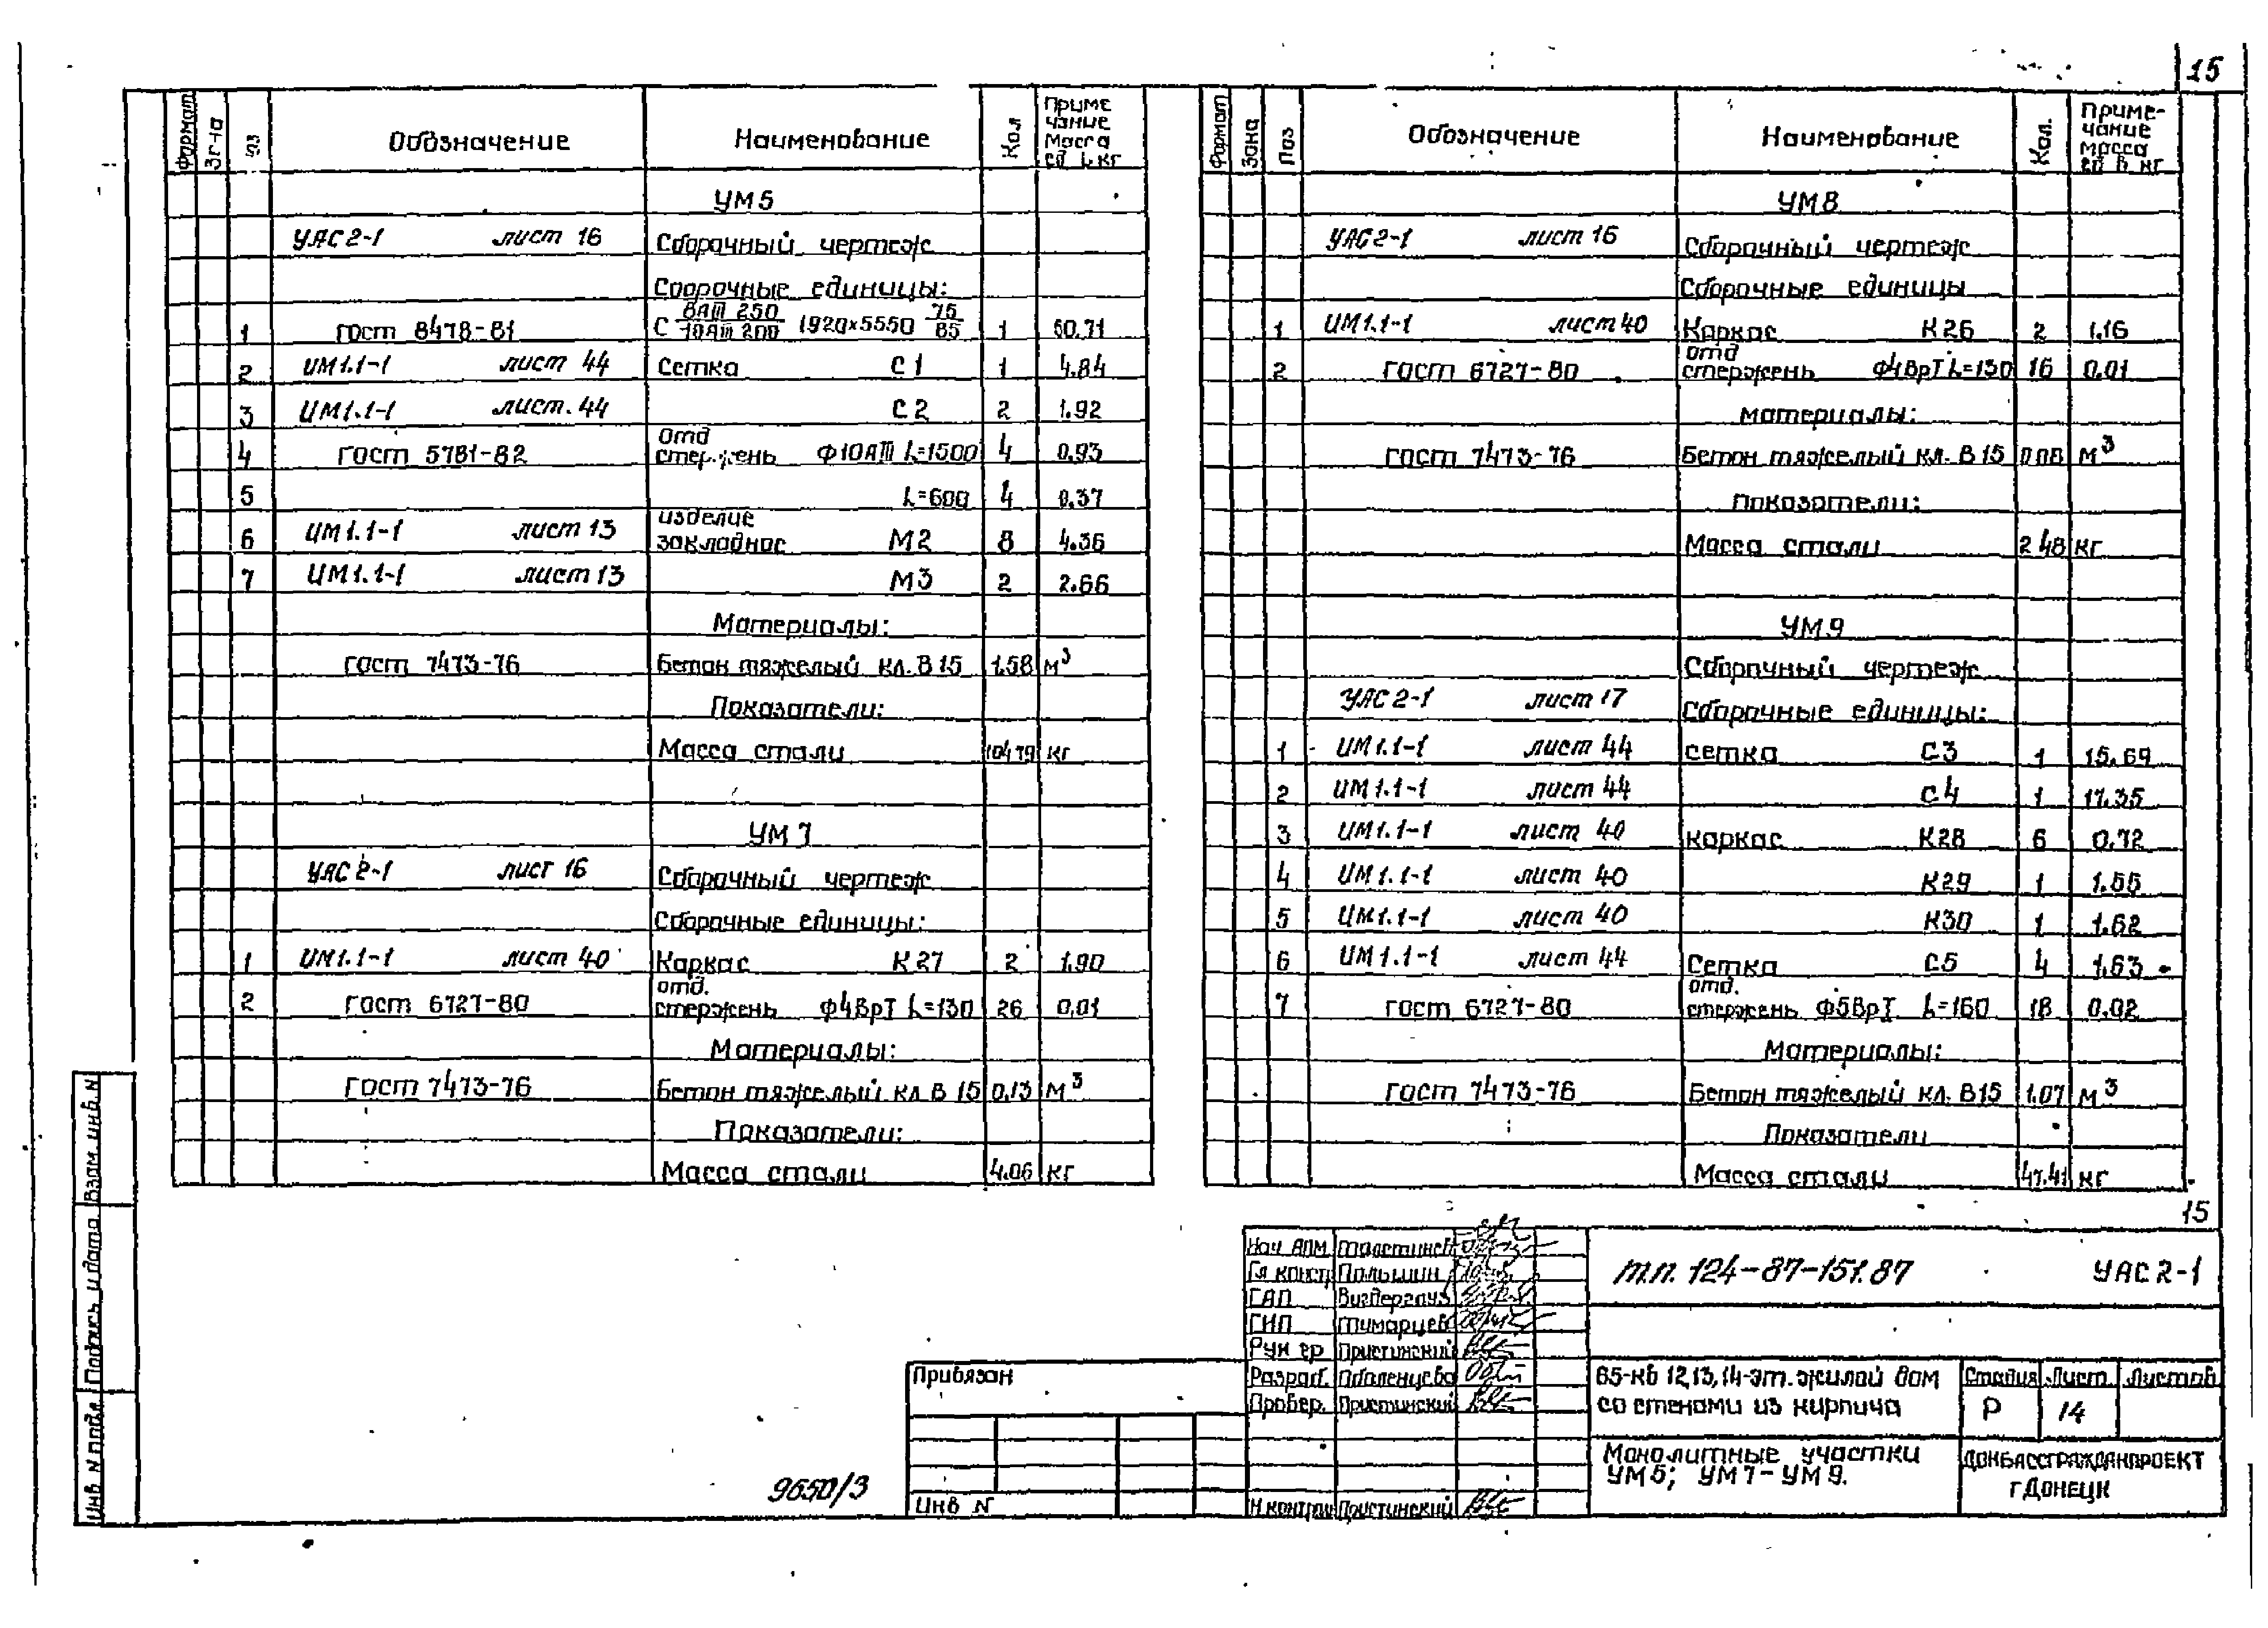 15
Формат Поз Обозначение Наименование Кол Приме
чание
Масса
ед в кг
УМ5
УАС2-1 лист 16 Сборочный чертеж
Сборочные единицы:
1 ГОСТ 8478-81 С 8АШ 250 / 10АШ 200 1920×5550 75/85 1 60.71
2 ИМ1.1-1 лист 44 Сетка С1 1 4.84
3 ИМ1.1-1 лист. 44 С2 2 1.92
4 ГОСТ 5781-82 отд стержень Ф10АШ L=1500 4 0.93
5 L=600 4 0.37
6 ИМ1.1-1 лист 13 изделие закладное М2 8 4.36
7 ИМ1.1-1 лист 13 М3 2 2.66
Материалы:
ГОСТ 7473-76 Бетон тяжелый кл. В15 1.58 м3
Показатели:
Масса стали 104 79 кг
УМ 7
УАС 2-1 лист 16 Сборочный чертеж
Сборочные единицы:
1 ИМ1.1-1 лист 40 Каркас К27 2 1.90
2 ГОСТ 6727-80 отд. стержень Ф4ВрТ L=130 26 0.01
Материалы:
ГОСТ 7473-76 Бетон тяжелый кл В 15 0.13 м3
Показатели:
Масса стали 4.06 кг
Формат Зона Поз Обозначение Наименование Кол. Приме-
чание
масса
ед в кг
УМ8
УАС2-1 лист 16 Сборочный чертеж
Сборочные единицы
1 ИМ1.1-1 лист 40 Каркас К26 2 1.16
2 ГОСТ 6727-80 отд стержень Ф4ВрТ L=130 16 0.01
материалы:
ГОСТ 7473-76 Бетон тяжелый кл. В15 0 08 м3
Показатели:
Масса стали 2 48 кг
УМ9
Сборочный чертеж
УАС 2-1 лист 17 Сборочные единицы:
1 ИМ1.1-1 лист 44 сетка С3 1 15.69
2 ИМ1.1-1 лист 44 С4 1 17.35
3 ИМ1.1-1 лист 40 каркас К28 6 0.72
4 ИМ1.1-1 лист 40 К29 1 1.55
5 ИМ1.1-1 лист 40 К30 1 1.62
6 ИМ1.1-1 лист 44 Сетка С5 4 1.63
7 ГОСТ 6727-80 отд. стержень Ф5ВрТ L=160 18 0.02
Материалы:
ГОСТ 7473-76 Бетон тяжелый кл. В15 1.07 м3
Показатели
Масса стали 47.41 кг
15
Взам. инв. N
Подпись и дата
Инв N подл
9650/3
Привязан
Инв N
Нач АПМ
Гл констр Палышин
ГАП
ГИП Тимарцев
Рук гр Пристинский
Разраб.
Провер. Пристинский
Н.контрол Пристинский
т.п. 124-87-151.87 УАС 2-1
65-кв 12,13,14-эт. жилой дом
со стенами из кирпича
Стадия Лист Листов
Р 14
Монолитные участки
УМ5; УМ7-УМ9.
ДОНБАССГРАЖДАНПРОЕКТ
г.Донецк